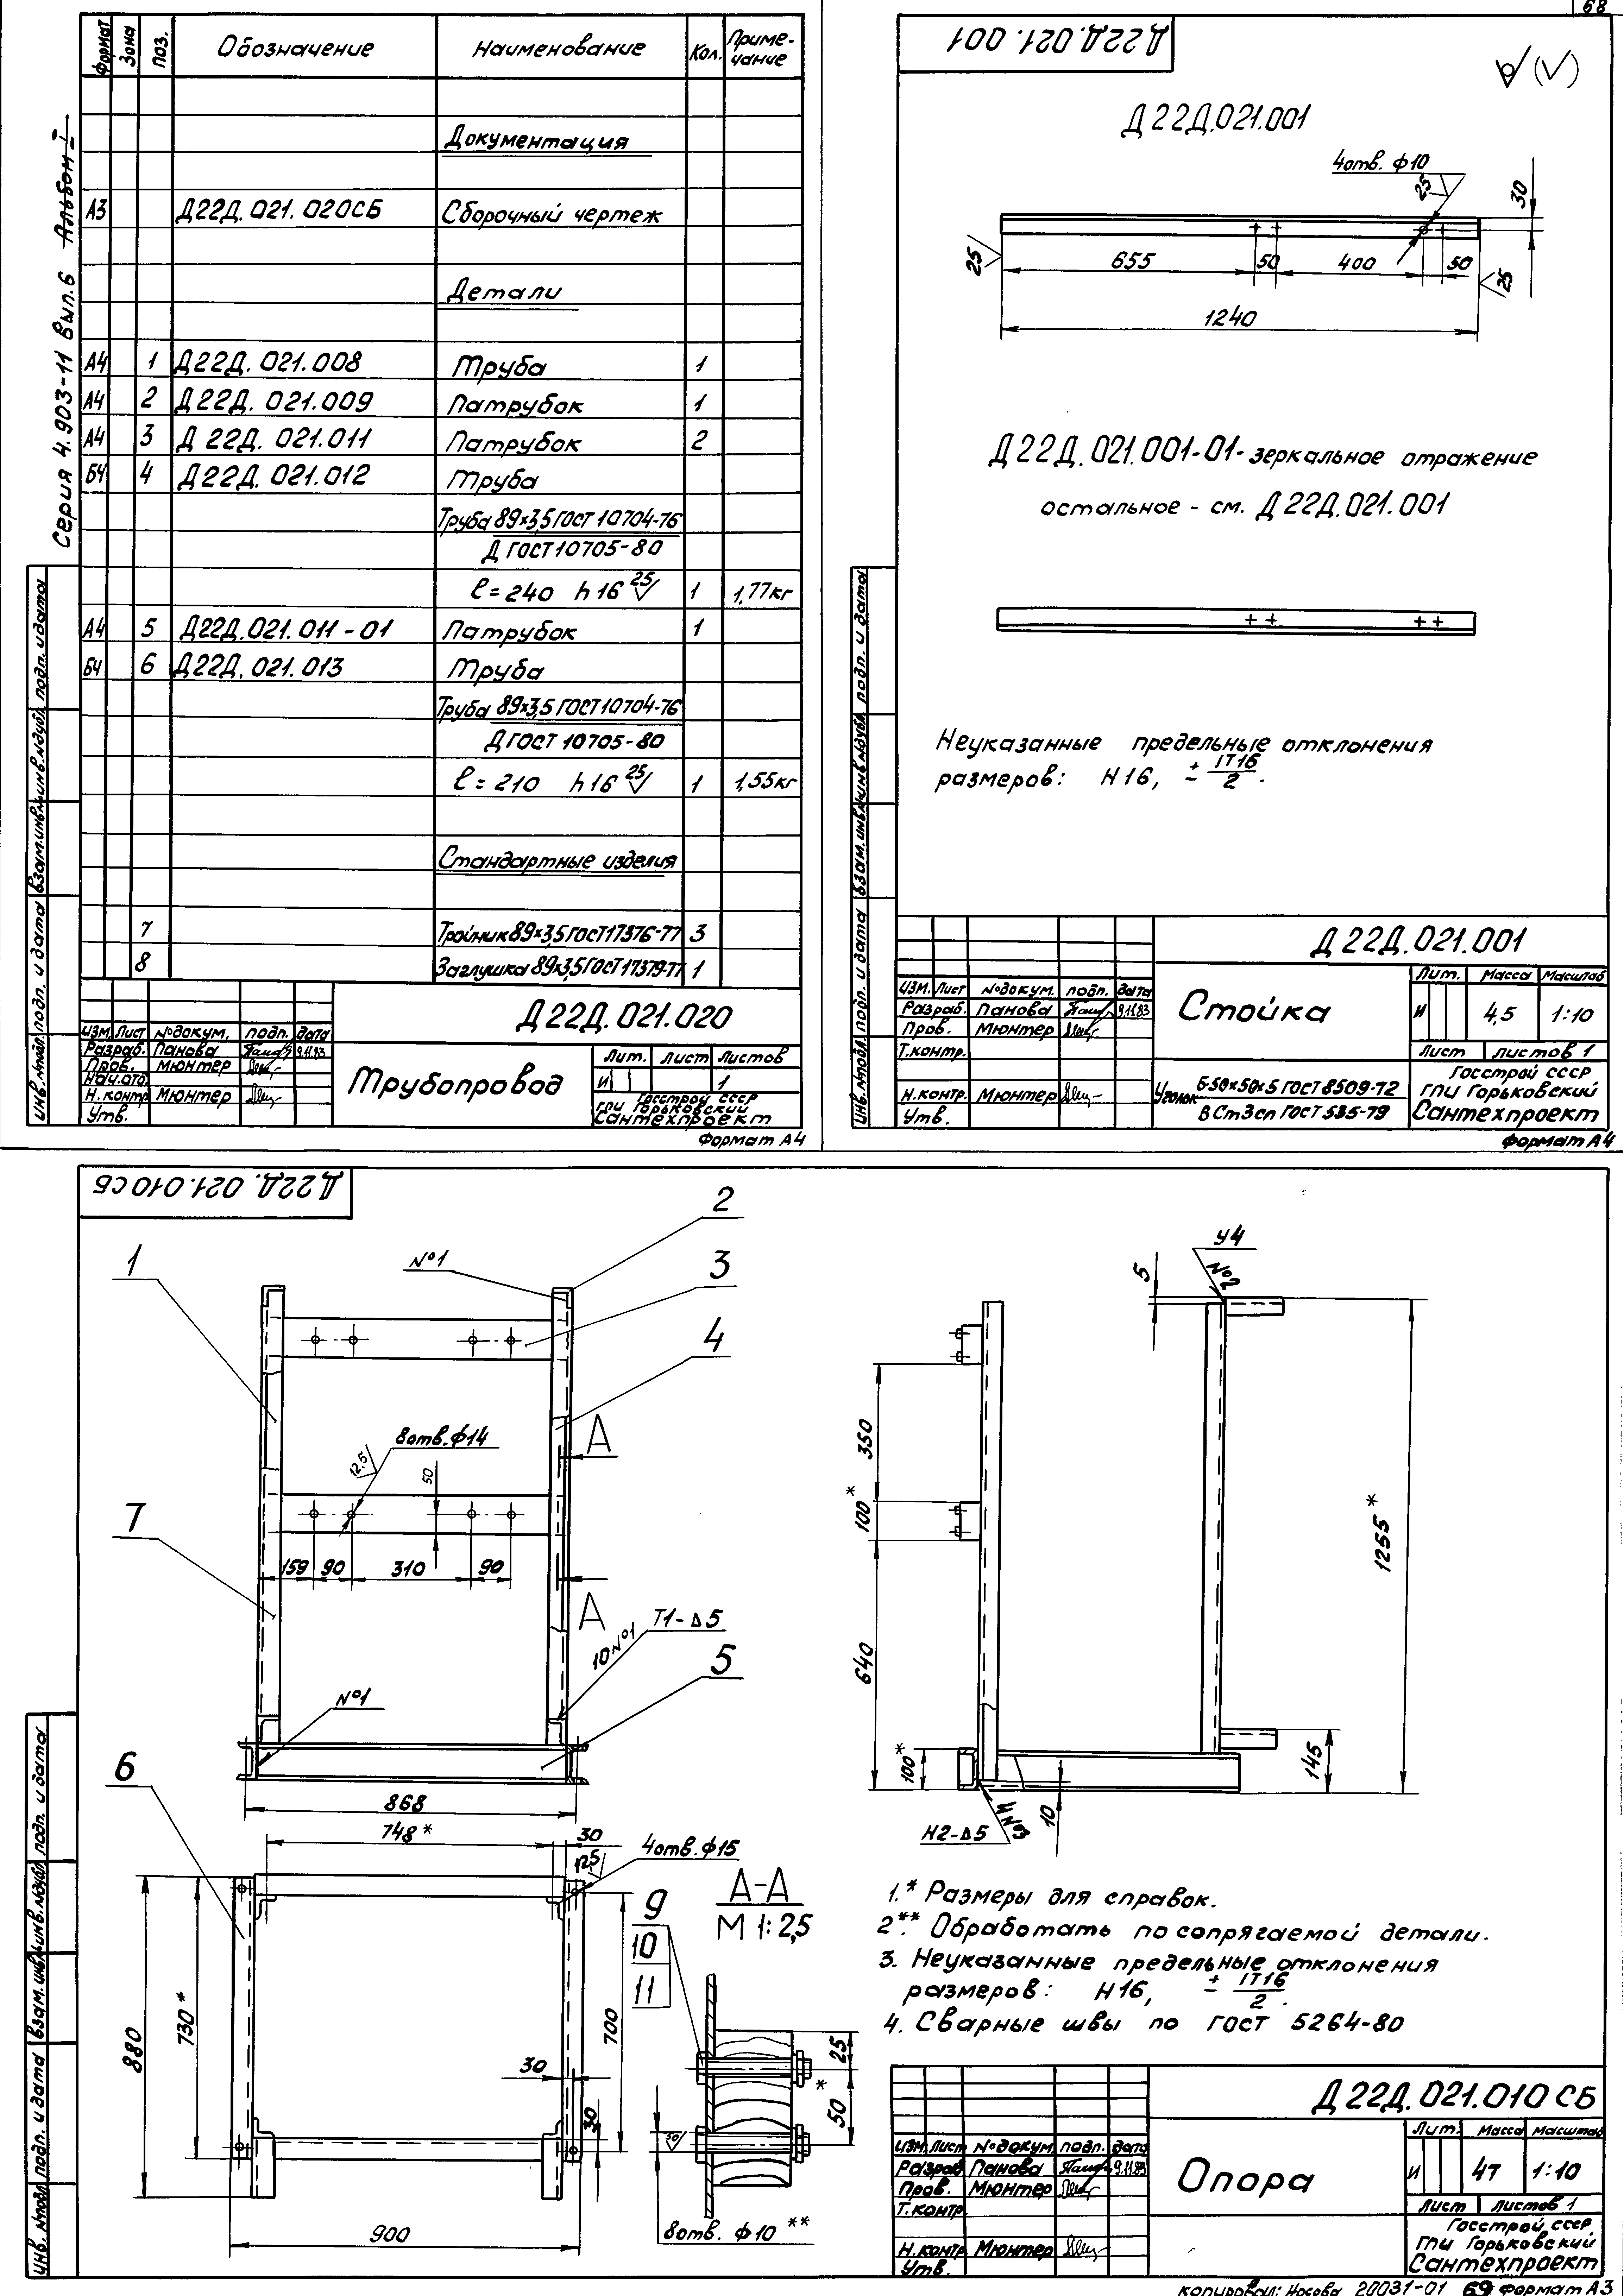 68
Серия 4.903-11 Вып.6 Альбом I
Формат Зона Поз. Обозначение Наименование Кол. Приме-
чание
Документация
А3 Д22Д.021.020СБ Сборочный чертеж
Детали
А4 1 Д22Д.021.008 Труба 1
А4 2 Д22Д.021.009 Патрубок 1
А4 3 Д22Д.021.011 Патрубок 2
БЧ 4 Д22Д.021.012 Труба
Труба 89×3,5 ГОСТ 10704-76
Д ГОСТ 10705-80
ℓ=240 h16 25 1 1,77кг
А4 5 Д22Д.021.011-01 Патрубок 1
БЧ 6 Д22Д.021.013 Труба
Труба 89×3,5 ГОСТ 10704-76
Д ГОСТ 10705-80
ℓ=210 h16 25 1 1,55кг
Стандартные изделия
7 Тройник 89×3,5 ГОСТ17376-77 3
8 Заглушка 89×3,5 ГОСТ 17379-77 1
Инв.№подл. Подп. и дата Взам.инв.№ Инв.№дубл. Подп. и дата
Д22Д.021.020
Изм. Лист №докум. подп. дата
Разраб. Панова 9.11.83
Пров. Мюнтер
Нач.отд.
Н.контр. Мюнтер
Утв.
Трубопровод
Лит. Лист Листов
И 1
Госстрой СССР
ГПИ Горьковский
Сантехпроект
Формат А4
Д22Д.021.001
Д22Д.021.001
4отв. ф10
25
30
25
655 50 400 50
25
1240
Д22Д.021.001-01- зеркальное отражение
остальное - см. Д22Д.021.001
Неуказанные предельные отклонения
размеров: Н16, ± IT16/2.
Инв.№подл. Подп. и дата Взам.инв.№ Инв.№дубл. Подп. и дата
Д22Д.021.001
Изм. Лист №докум. подп. дата
Разраб. Панова 9.11.83
Пров. Мюнтер
Т.контр.
Н.контр. Мюнтер
Утв.
Стойка
Лит. Масса Масштаб
И 4,5 1:10
Лист Листов 1
Уголок Б-50×50×5 ГОСТ 8509-72
ВСт3сп ГОСТ 535-79
Госстрой СССР
ГПИ Горьковский
Сантехпроект
Формат А4
Д22Д.021.010СБ
1
№1
2
3
4
8отв.ф14
12,5
50
А
7
159 90 310 90
А
Т1-Δ5
10№1
5
№1
6
868
748*
30
4отв.ф15
12,5
880
730*
700
30
30
900
У4
№2
5
350
100*
640
100*
1255*
145
10
Н2-Δ5
4№3
А-А
М 1:2,5
9
10
11
25
50*
50
8отв. ф10**
1.* Размеры для справок.
2.** Обработать по сопрягаемой детали.
3. Неуказанные предельные отклонения
размеров: Н16, ± IT16/2.
4. Сварные швы по ГОСТ 5264-80
Инв.№подл. Подп. и дата Взам.инв.№ Инв.№дубл. Подп. и дата
Д22Д.021.010СБ
Изм. Лист №докум. подп. дата
Разраб. Панова 9.11.83
Пров. Мюнтер
Т.контр.
Н.контр. Мюнтер
Утв.
Опора
Лит. Масса Масштаб
И 47 1:10
Лист Листов 1
Госстрой СССР
ГПИ Горьковский
Сантехпроект
Копировал: Носова 20031-01 69 Формат А3